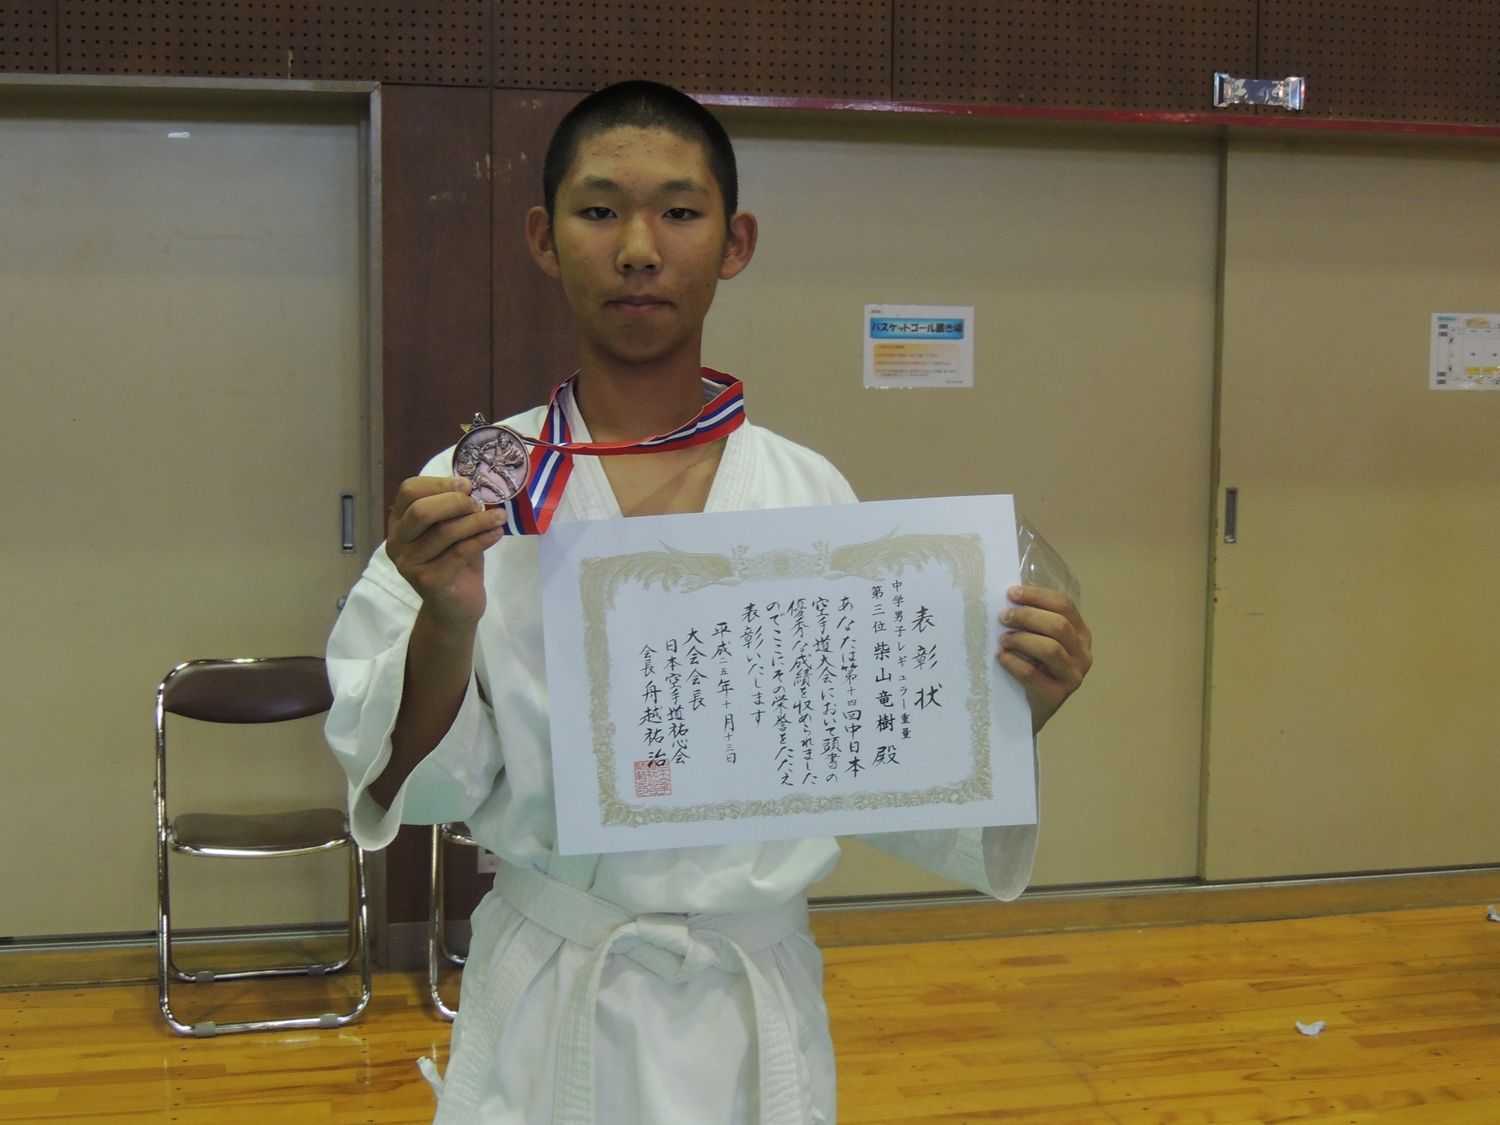 表彰状
中学男子レギュラー重量
第三位 柴山竜樹 殿
あなたは第十四回中日本
空手道大会において頭書の
優秀な成績を収められました
のでここにその栄誉をたたえ
表彰いたします
平成二五年十月十三日
大会会長
日本空手道祐心会
会長 舟越祐治
バスケットゴール置き場